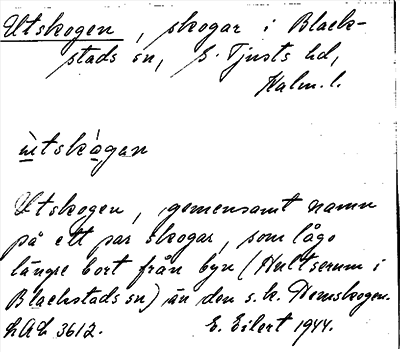 Utskogen, skogar i Black-
stads sn, S. Tjusts hd,
Kalm. l.
ùtskàgan
Utskogen, gemensamt namn
på ett par skogar, som lågo
längre bort från byn (Hultserum i
Blackstads sn) än den s.k. Hemskogen.
LAL 3612. E. Eilert 1944.